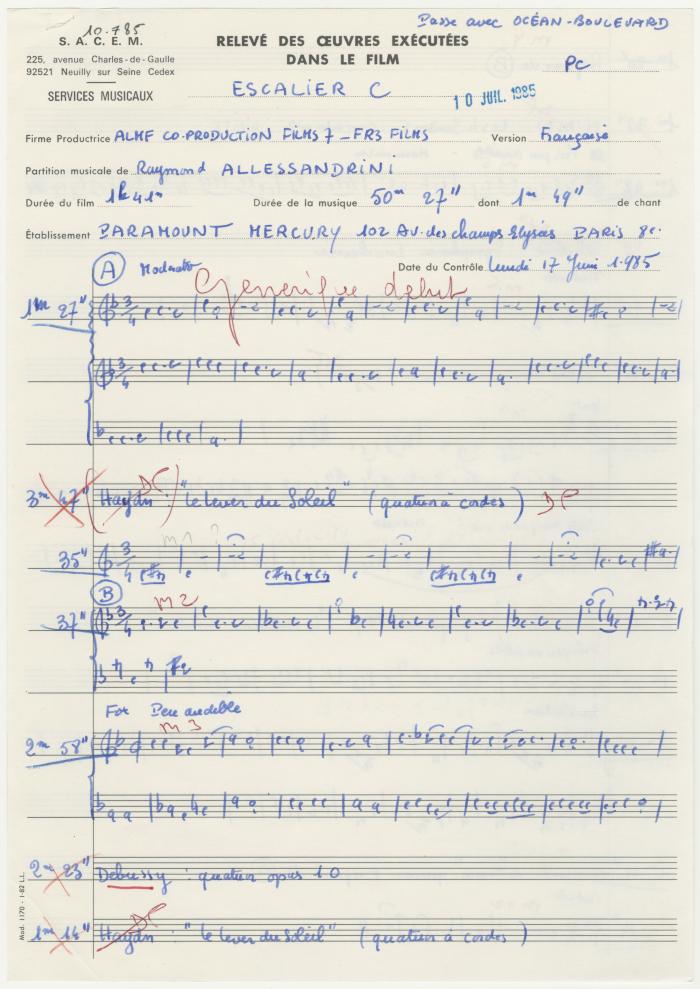 Passe avec OCÉAN-BOULEVARD
10.785
S. A. C. E. M.
225, avenue Charles-de-Gaulle
92521 Neuilly sur Seine Cedex
SERVICES MUSICAUX
RELEVÉ DES ŒUVRES EXÉCUTÉES
DANS LE FILM
PC
ESCALIER C
10 JUIL. 1985
Firme Productrice ALMF CO-PRODUCTION FILMS 7 - FR3 FILMS Version Française
Partition musicale de Raymond ALLESSANDRINI
Durée du film 1h 41m Durée de la musique 50m 27" dont 1m 49" de chant
Établissement PARAMOUNT MERCURY 102 AV. des champs Elysées PARIS 8e.
A Moderato Date du Contrôle Lundi 17 Juin 1.985
Generique debut
1m 27"
3m 47" Haydn : "Le Lever du Soleil" (quatuor à cordes) DP
m1 ?
35"
B
m2
37"
For Peu audible
m3
2m 58"
2m 23" Debussy : quatuor opus 10
1m 14" Haydn : "Le Lever du Soleil" (quatuor à cordes)
Mod. 1170 - 1-82 L.L.